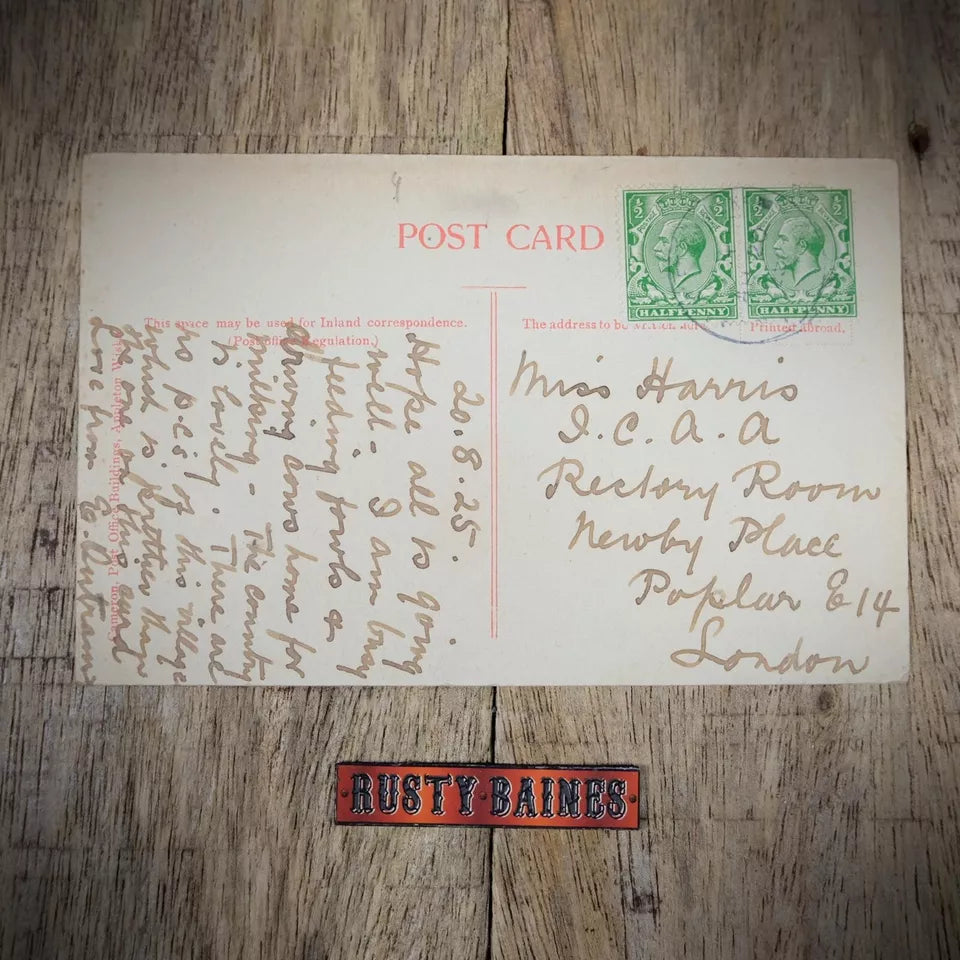 POST CARD
½ ½
½ ½
HALFPENNY
HALFPENNY
This space may be used for Inland correspondence.
(Post Office Regulation.)
The address to be
Printed abroad.
Cameron, Post Office Buildings, Appleton Wiske
20.8.25.
Hope all is going
well - I am busy
feeding fowls &
driving cows home for
milking - The country
is lovely. There are
no p.c's of this village
which is prettier than
the one on this card
Love from
Miss Harris
I.C.A.A
Rectory Room
Newby Place
Poplar E14
London
RUSTY BAINES